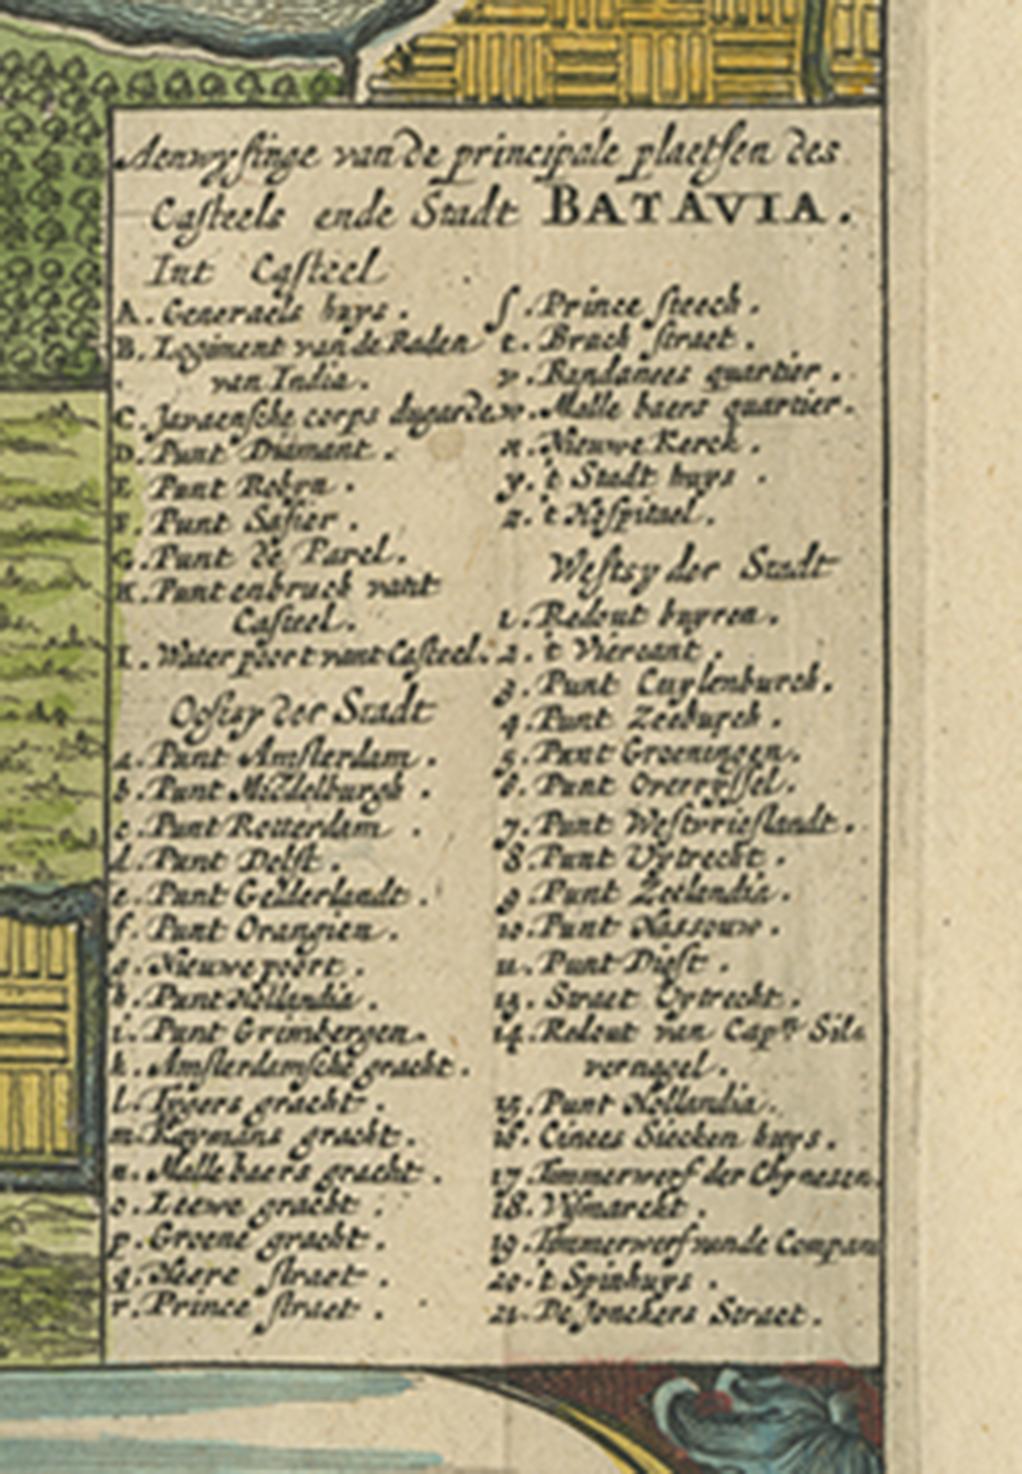 Aenwysinge van de principale plaetsen des
Casteels ende Stadt BATAVIA.
Int Casteel
A. Generaels huys.
B. Logiment van de Raden
van India.
C. Javaensche corps dugarde
D. Punt Diamant.
E Punt Robyn.
F. Punt Safier.
G. Punt de Parel.
K. Punt enbruch vant
Casteel.
I. Water poort vant Casteel.
Oostsy der Stadt
a. Punt Amsterdam.
b. Punt Middelburgh.
c. Punt Rotterdam.
d. Punt Delft.
e. Punt Gelderlandt.
f. Punt Orangien.
g. Nieuwe poort.
h. Punt Hollandia.
i. Punt Grimbergen.
k. Amsterdamsche gracht.
l. Tygers gracht.
m. Kaymans gracht.
n. Mallebaers gracht.
o. Leewe gracht.
p. Groene gracht.
q. Heere straet.
r. Prince straet.
s. Prince steech.
t. Brach straet.
v. Bandanees quartier.
w. Malle baers quartier.
x. Nieuwe Kerck.
y. 't Stadt huys.
z. 't Hospitael.
Westsy der Stadt
1. Redout buyren.
2. 't Viercant.
3. Punt Cuylenburch.
4. Punt Zeeburch.
5. Punt Groeningen.
6. Punt Overryssel.
7. Punt Westvrieslandt.
8. Punt Uytrecht.
9. Punt Zeelandia.
10. Punt Nassouw.
11. Punt Diest.
13. Straet Uytrecht.
14. Redout van Capn. Sil=
vernagel.
15. Punt Hollandia.
16. Cinees Siecken huys.
17. Timmerwerf der Chynesen.
18. Vismarckt.
19. Timmerwerf vande Compan
20. 't Spinhuys.
21. De Jonckers Straet.